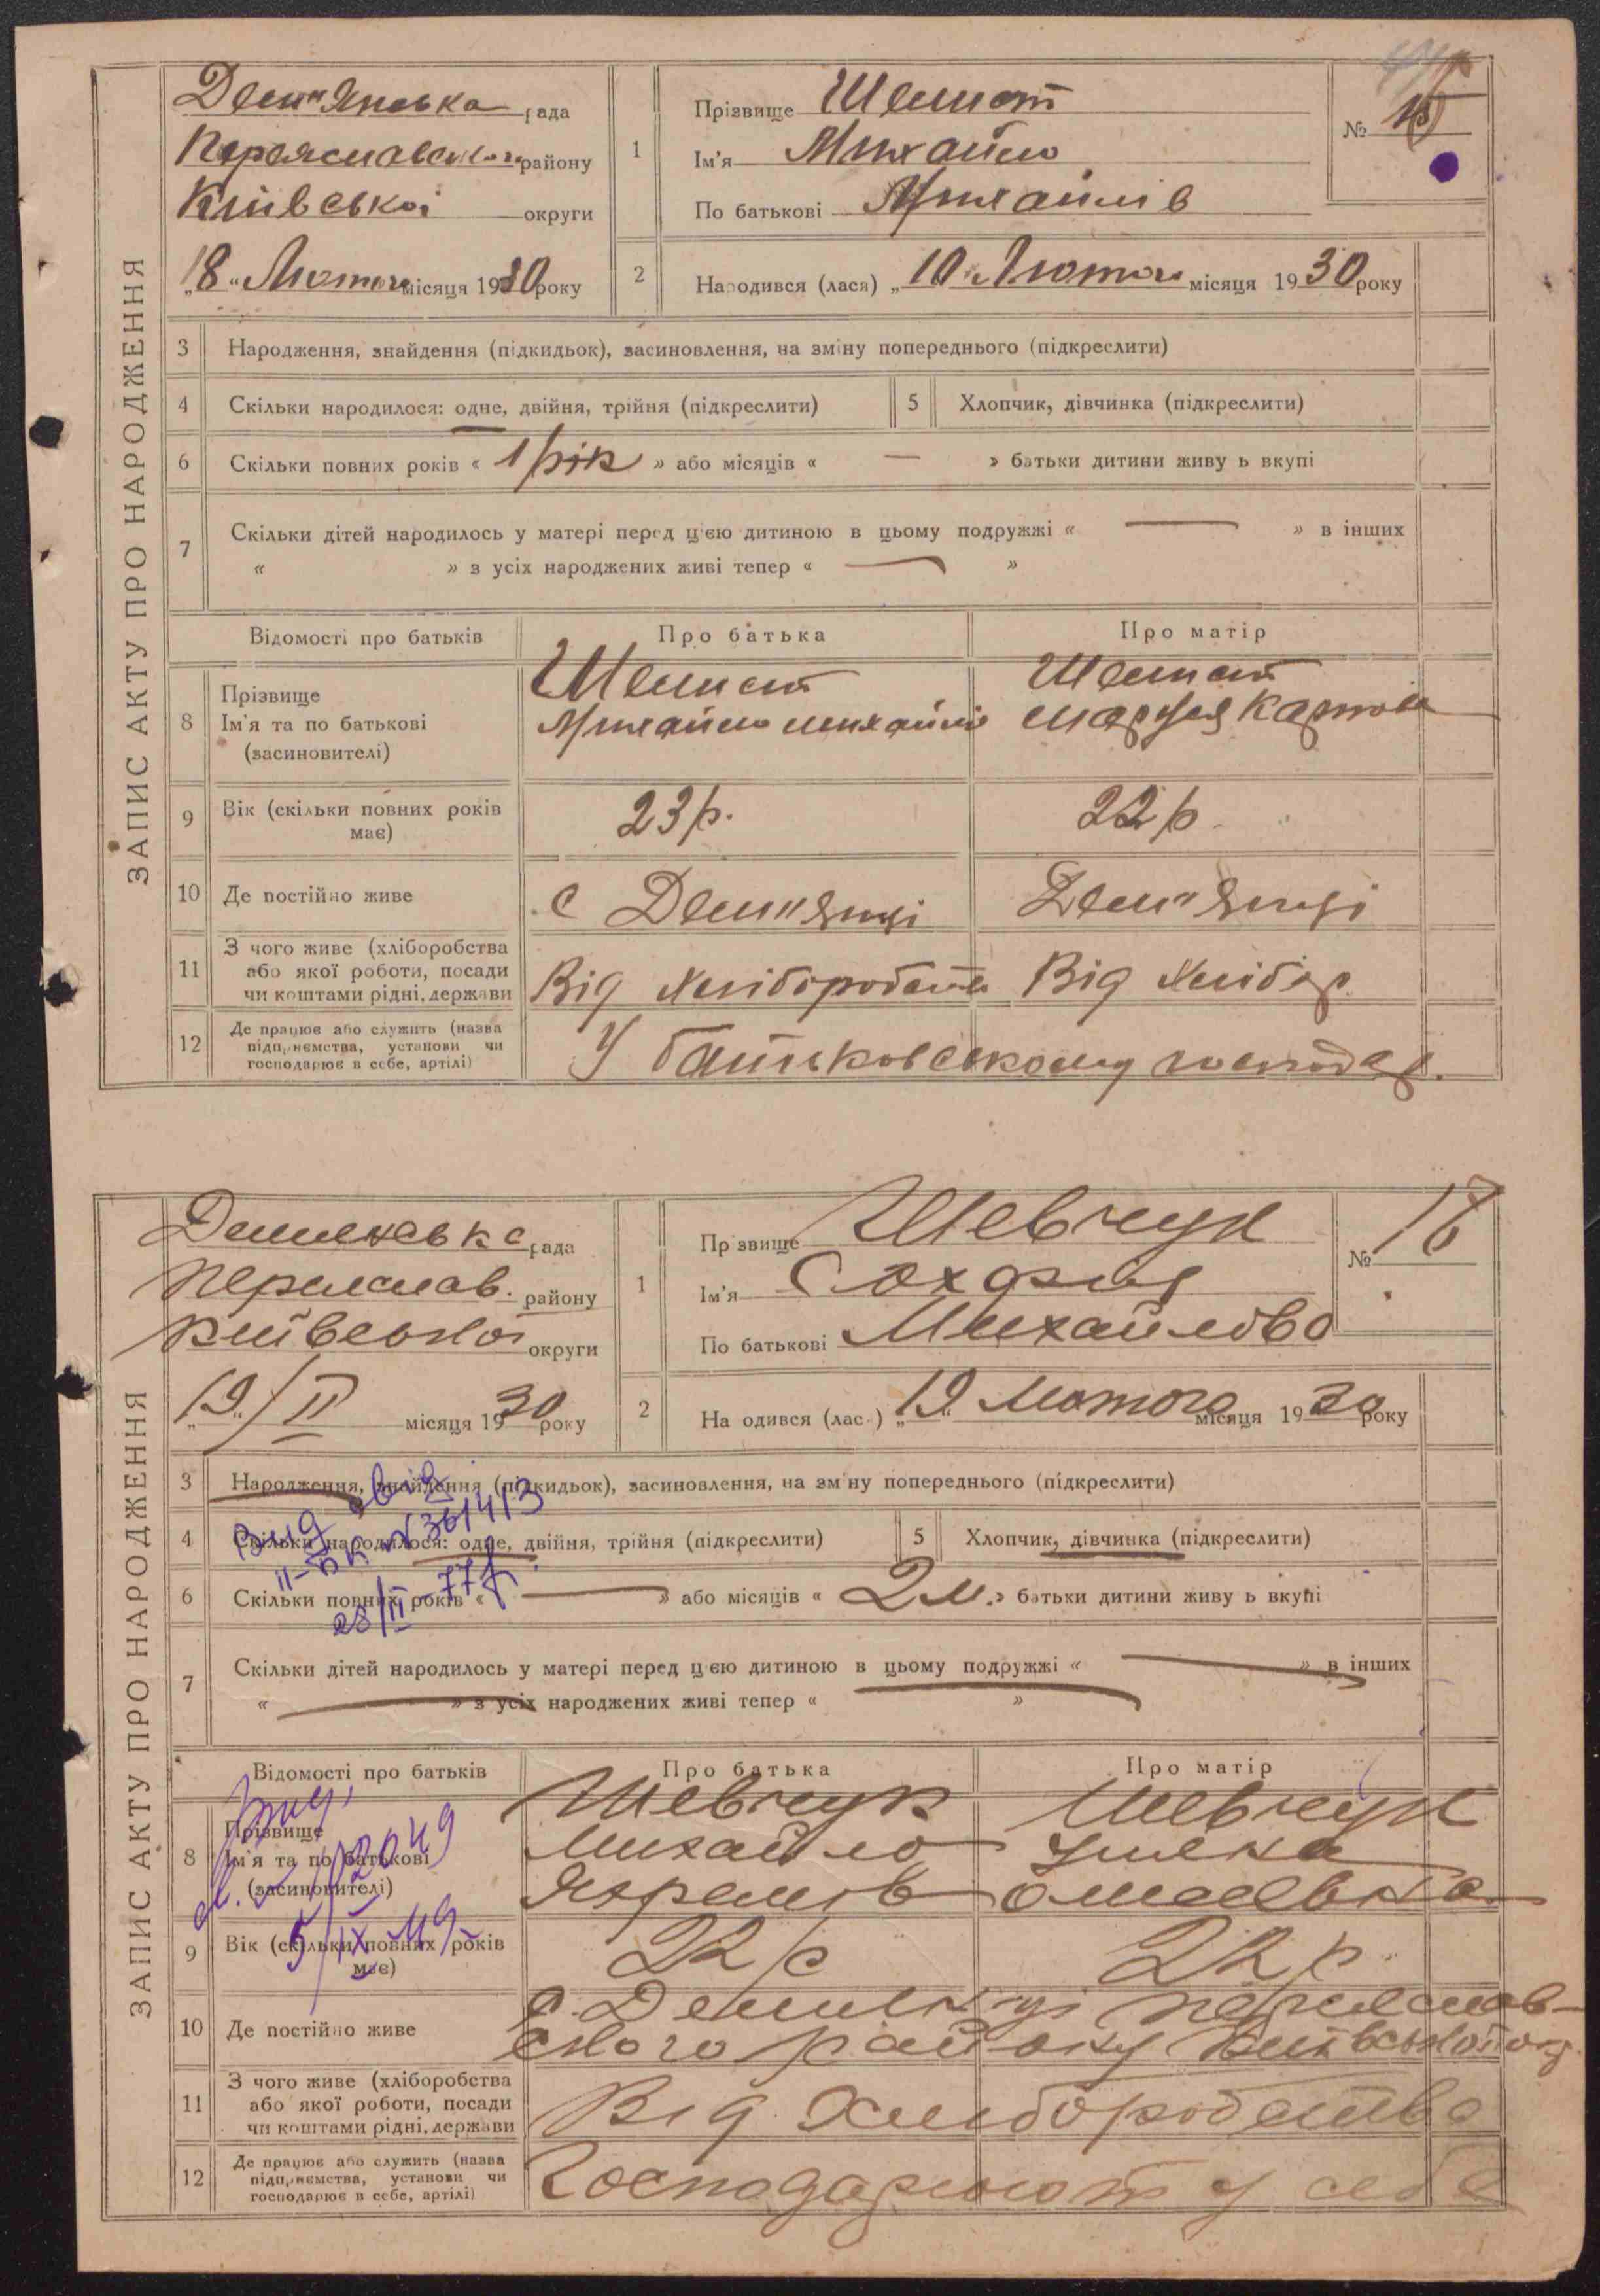 ЗАПИС АКТУ ПРО НАРОДЖЕННЯ
Дем"янська рада
Переяславського району
Київської округи
"18" Лютого місяця 1930 року
1
Прізвище Шемет
Ім'я Михайло
По батькові Михайлів
№ 15
2
Народився (лася) „10" Лютого місяця 1930 року
3 Народження, знайдення (підкидьок), засиновлення, на зміну попереднього (підкреслити)
4 Скільки народилося: одне, двійня, трійня (підкреслити)
5 Хлопчик, дівчинка (підкреслити)
6 Скільки повних років « 1 рік » або місяців « — » батьки дитини живу ь вкупі
7 Скільки дітей народилось у матері перед цією дитиною в цьому подружжі « — » в інших
« » з усіх народжених живі тепер « — »
Відомості про батьків Про батька Про матір
8 Прізвище
Ім'я та по батькові
(засиновителі)
Шемет
Михайло Михайлів
Шемет
Карпов
9 Вік (скільки повних років має)
23 р. 22 р.
10 Де постійно живе
с Дем"янці Дем"янці
11 З чого живе (хліборобства або якої роботи, посади чи коштами рідні, держави
Від Хліборобства Від Хлібор.
12 Де працює або служить (назва підприємства, установи чи господарює в себе, артілі)
У батьковському господар.
ЗАПИС АКТУ ПРО НАРОДЖЕННЯ
Демянська рада
Переяслав. району
Київської округи
„19"/II місяця 1930 року
1
Пр звище Шевчук
Ім'я
По батькові Михайлова
№ 16
2
На одився (лас ) „19" Лютого місяця 1930 року
3 Народження, знайдення (підкидьок), засиновлення, на зм ну попереднього (підкреслити)
4 Скільки народилося: одне, двійня, трійня (підкреслити)
5 Хлопчик, дівчинка (підкреслити)
II-БК № 361413
28/II-77 р.
6 Скільки повних років « — » або місяців « 2 м. » батьки дитини живу ь вкупі
7 Скільки дітей народилось у матері перед цією дитиною в цьому подружжі « — » в інших
« — » з усіх народжених живі тепер « »
Відомості про батьків Про батька Про матір
8 Прізвище
Ім'я та по батькові
(засиновителі)
5/IX 49
Шевчук
Михайло
Яремів
Шевчук
Уляна
9 Вік (скільки повних років має)
22 р 22 р.
10 Де постійно живе
с. Демянці Переяслав-
ського району Київської ок.
11 З чого живе (хліборобства або якої роботи, посади чи коштами рідні, держави
Від Хліборобства
12 Де працює або служить (назва підприємства, установи чи господарює в себе, артілі)
Господарюють у себе